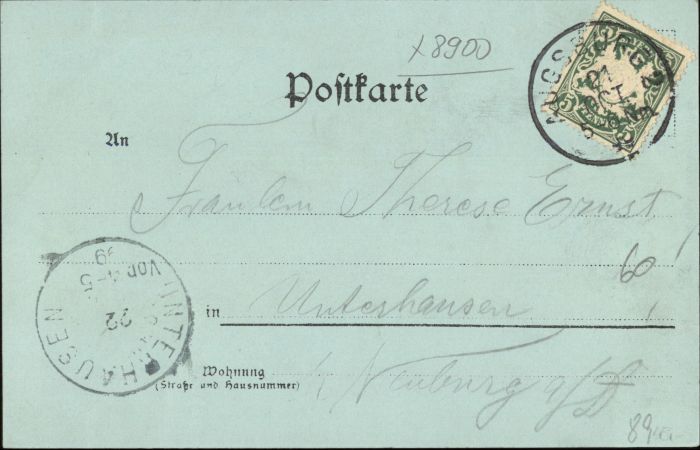 x8900
Postkarte
AUGSBURG 2
21
OCT
5
5
An
Fräulein Therese Ernst
6!
in
Unterhausen
Wohnung
(Straße und Hausnummer)
Neuburg a/D
UNTERHAUSEN
22
Vor. 4-5
99